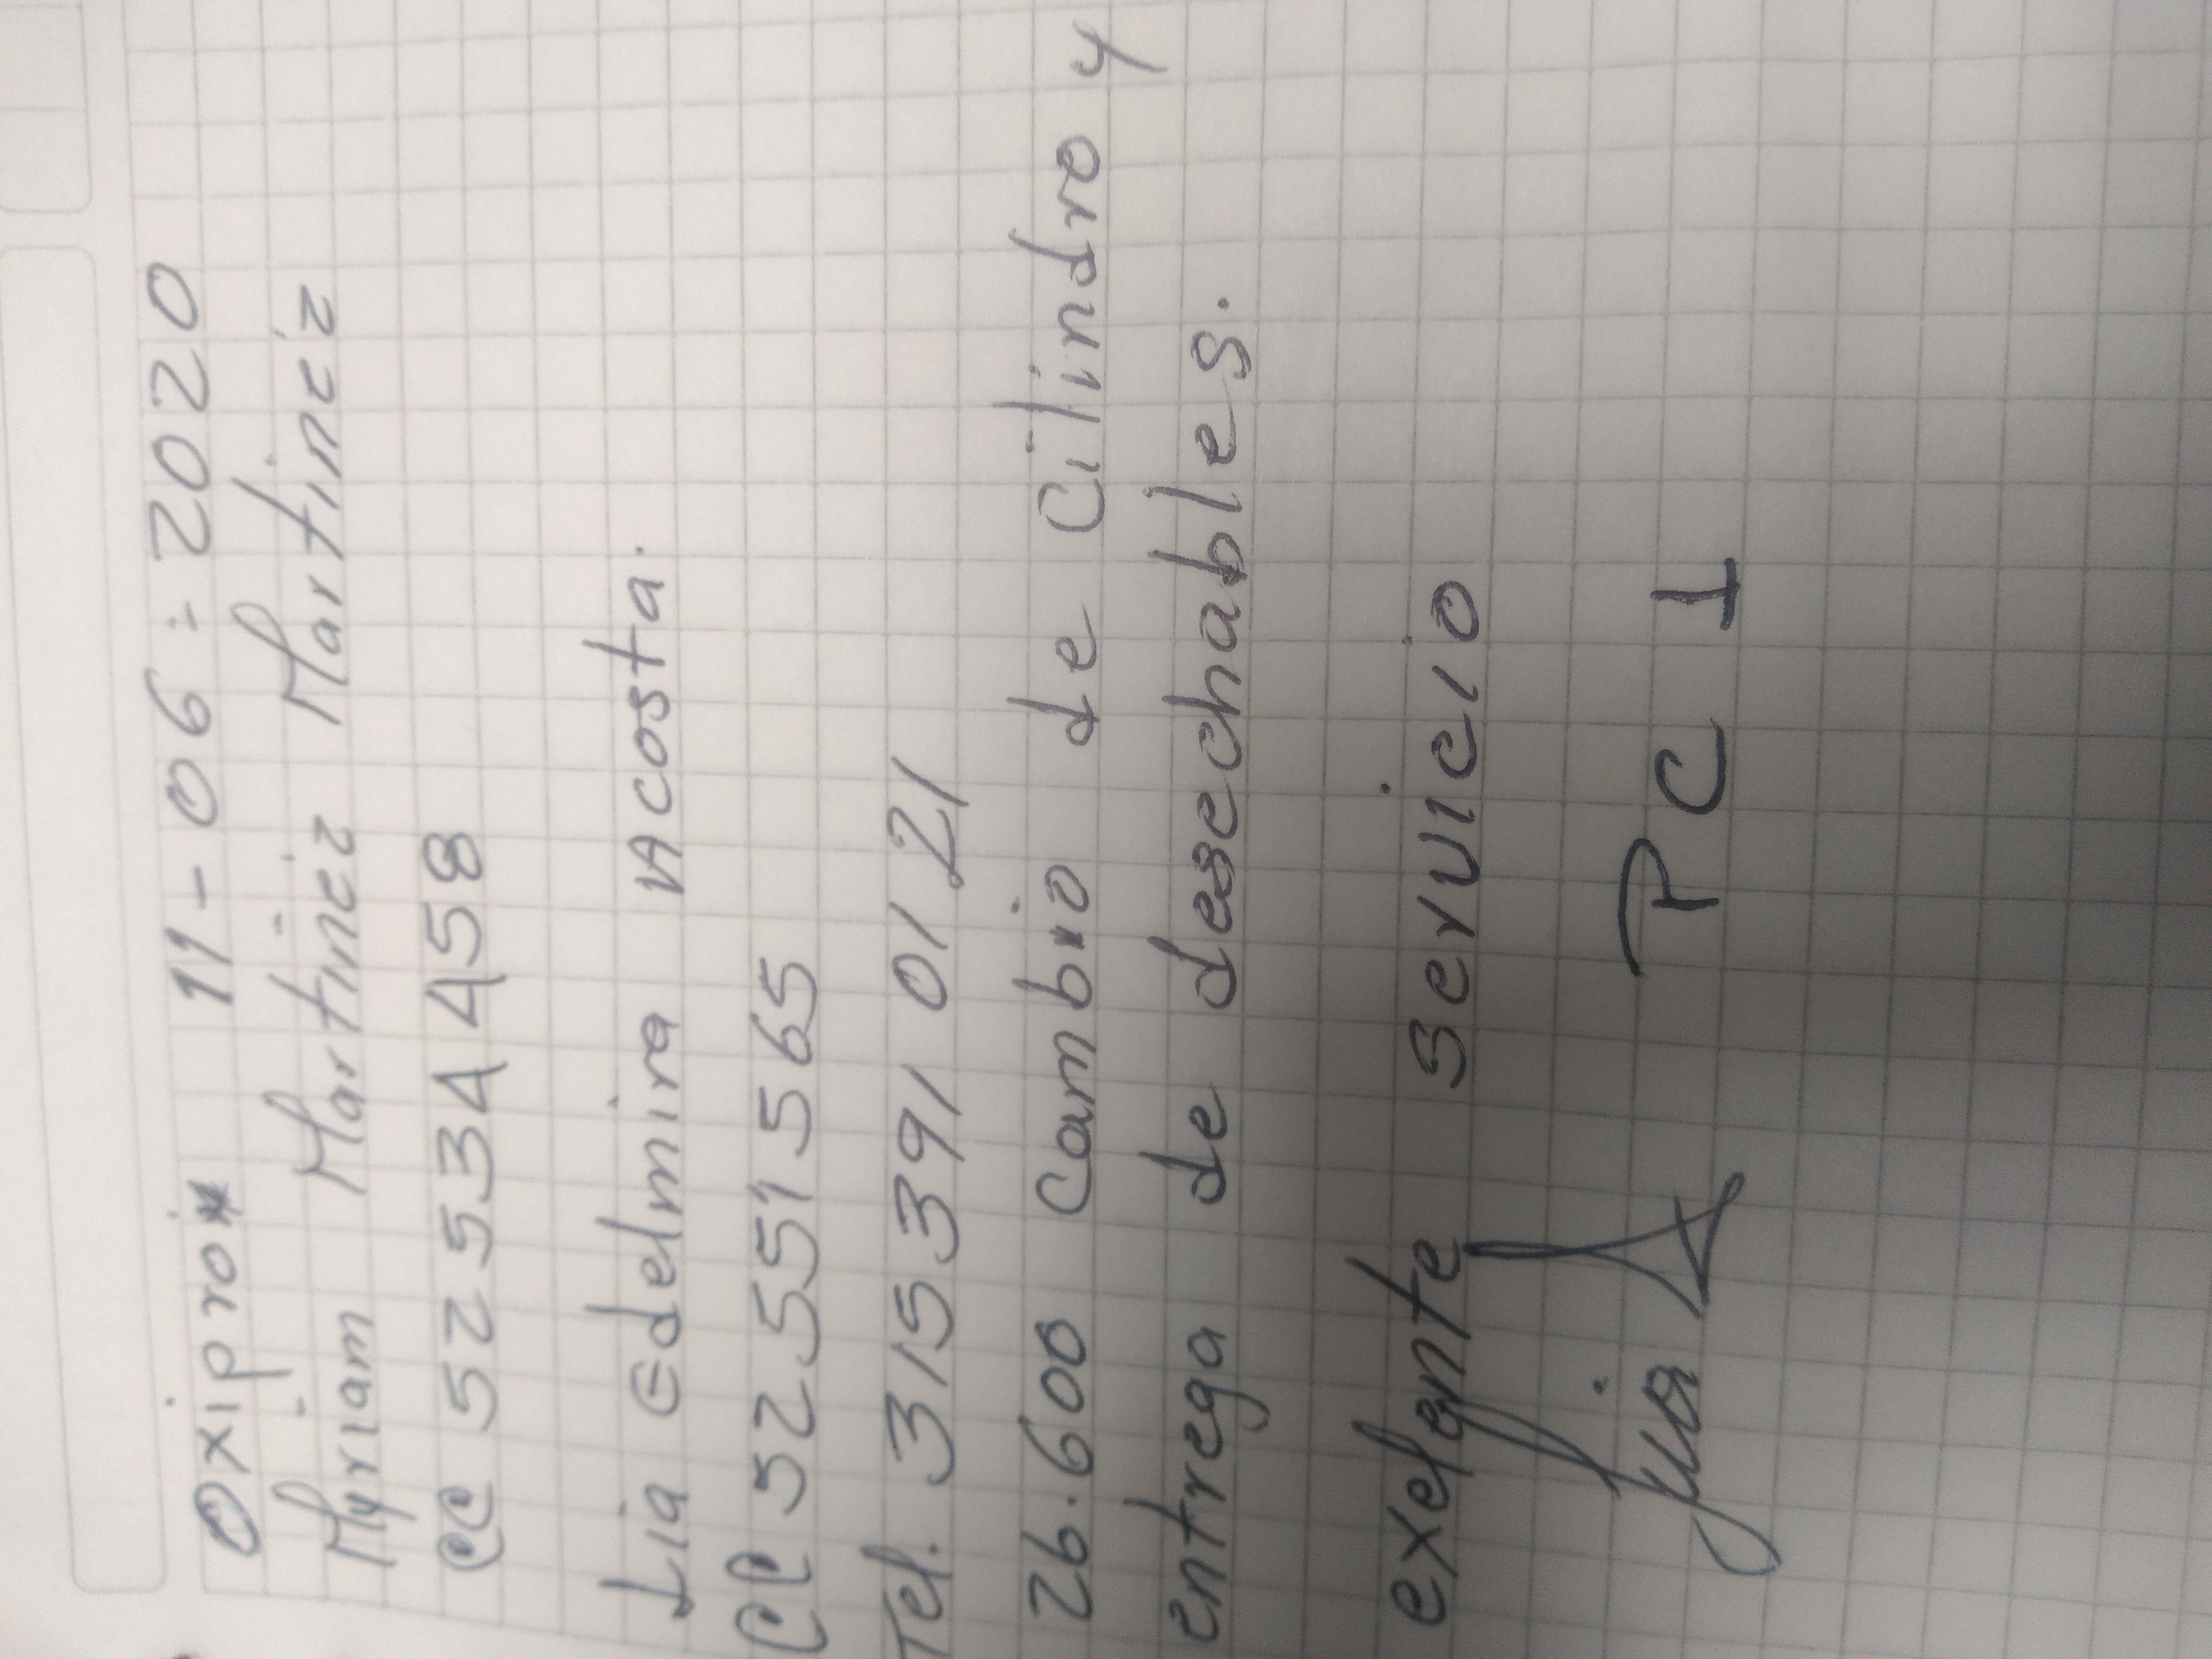 Oxipro 11-06-2020
Myriam Martinez Martinez
CC 52 534 458
Lia Edelmira Acosta.
CC 52 551 565
Tel. 315 391 01 21
26.600 Cambio de Cilindro y
entrega de desechables.
exelente servicio
Lia A PC 1